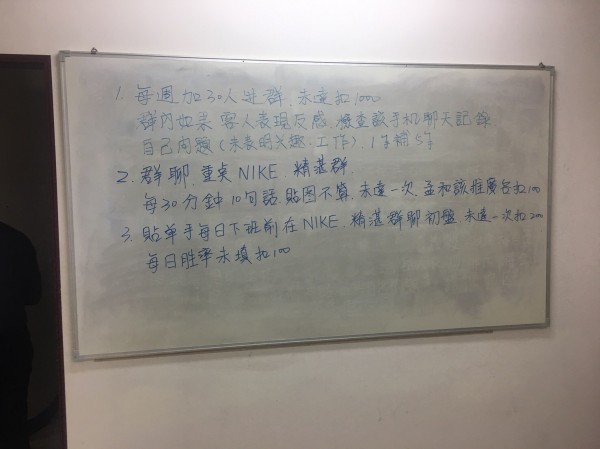 1. 每週加30人进群.未達扣1000
群内如果 客人表現反感.檢查該手机聊天記錄
自己问題(未表明兴趣.工作).1年補5年
2. 群聊.重桌NIKE.精湛群.
每30分鐘10句話.貼图不算.未達一次.孟和該推廣各扣100
3. 貼单手每日下班前在NIKE.精湛群聊初盤 未達一次扣200
每日胜率未填扣100